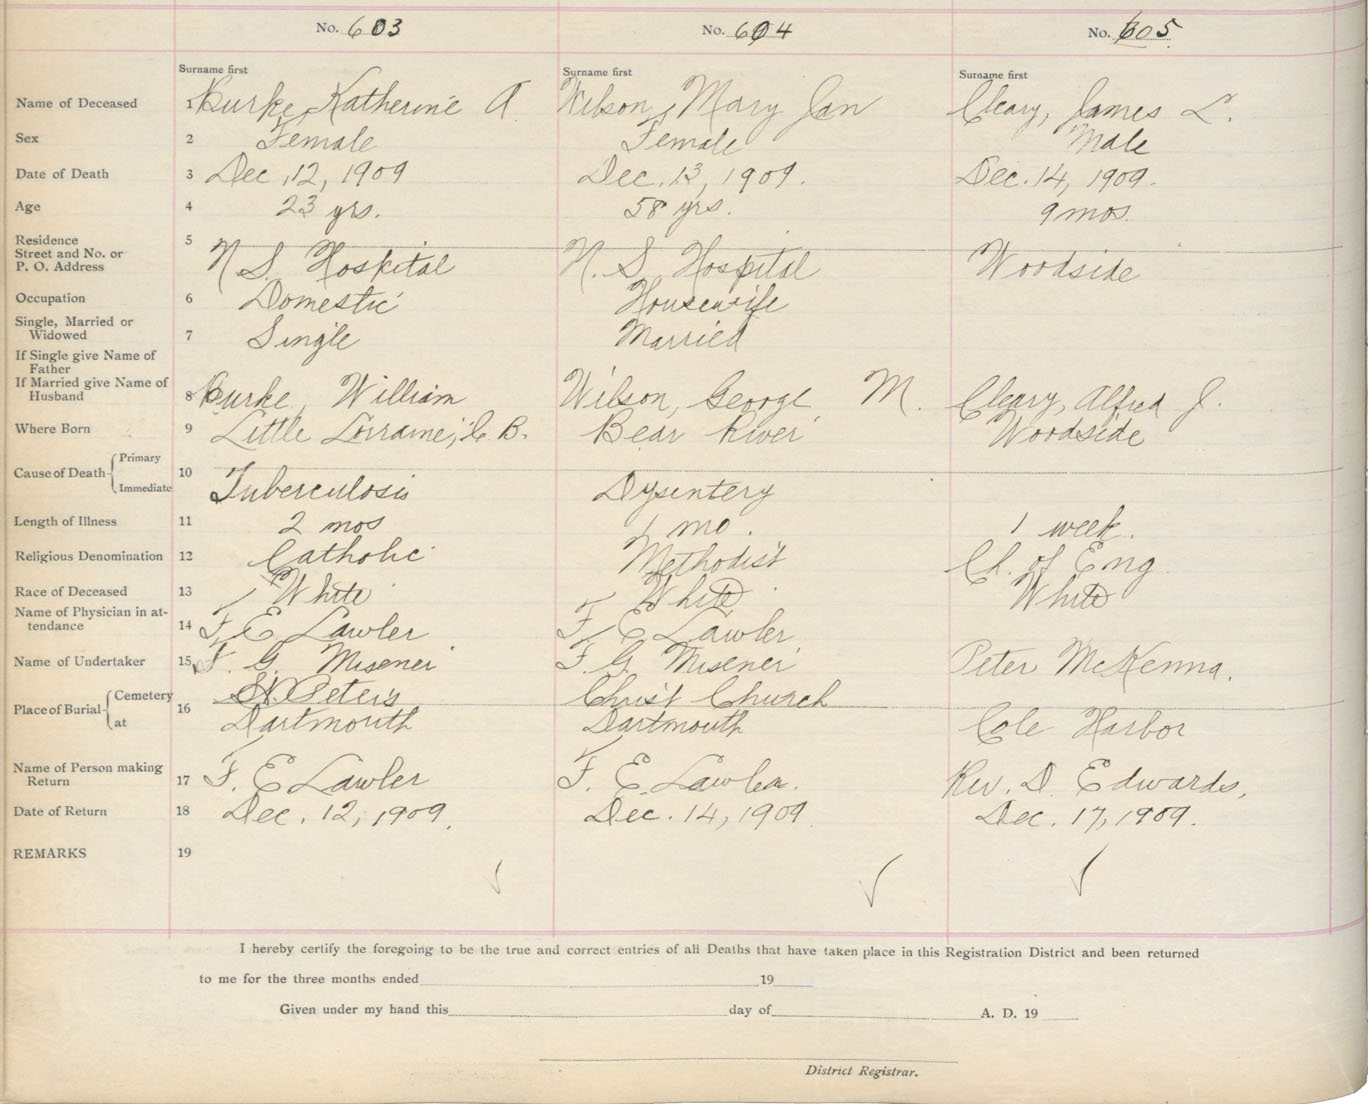 No. 603 No. 604 No. 605
Surname first Surname first Surname first
Name of Deceased 1 Burke, Katherine A. Wilson, Mary Jan Cleary, James L.
Sex 2 Female Female Male
Date of Death 3 Dec. 12, 1909 Dec. 13, 1909. Dec. 14, 1909.
Age 4 23 yrs. 58 yrs. 9 mos.
Residence 5
Street and No. or
P. O. Address N. S. Hospital N. S. Hospital Woodside
Occupation 6 Domestic Housewife
Single, Married or
Widowed 7 Single Married
If Single give Name of
Father
If Married give Name of
Husband 8 Burke, William Wilson, George M. Cleary, Alfred J.
Where Born 9 Little Lorraine, C. B. Bear River Woodside
Cause of Death Primary 10
Immediate Tuberculosis Dysentery
Length of Illness 11 2 mos 1 mo. 1 week.
Religious Denomination 12 Catholic Methodist Ch. of Eng
Race of Deceased 13 White White White
Name of Physician in at-
tendance 14 F. E. Lawler F. E. Lawler
Name of Undertaker 15 F. G. Misener F. G. Misener Peter McKenna.
Place of Burial Cemetery 16 St. Peter's Christ Church
at Dartmouth Dartmouth Cole Harbor
Name of Person making
Return 17 F. E. Lawler F. E. Lawler. Rev. D. Edwards,
Date of Return 18 Dec. 12, 1909. Dec. 14, 1909 Dec. 17, 1909.
REMARKS 19
I hereby certify the foregoing to be the true and correct entries of all Deaths that have taken place in this Registration District and been returned
to me for the three months ended 19
Given under my hand this day of A. D. 19
District Registrar.